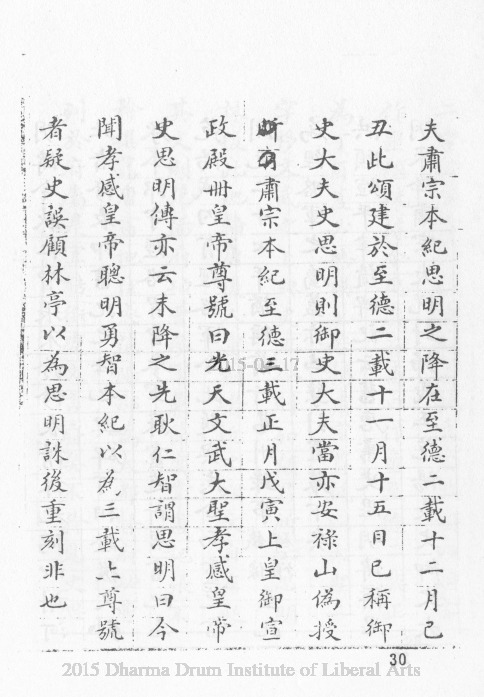 夫肅宗本紀思明之降在至德二載十二月己
丑此頌建於至德二載十一月十五日已稱御
史大夫史思明則御史大夫當亦安祿山僞授
肅宗本紀至德三載正月戊寅上皇御宣
政殿冊皇帝尊號曰光天文武大聖孝感皇帝
史思明傳亦云未降之先耿仁智謂思明曰今
聞孝感皇帝聰明勇智本紀以為三載上尊號
者疑史誤顧林亭以為思明誅後重刻非也
30
2015 Dharma Drum Institute of Liberal Arts